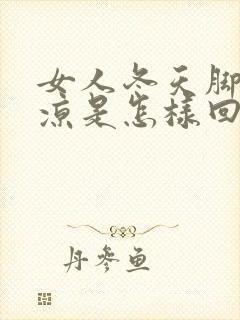 女人冬天脚
凉是怎样回
丹参鱼